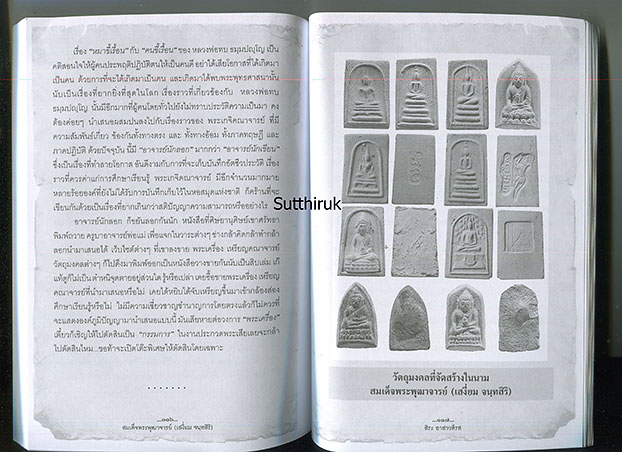 เรื่อง “หมาขี้เรื้อน” กับ “คนขี้เรื้อน” ของ หลวงพ่อทบ ธมฺมปญฺโญ เป็น
คติสอนใจให้ผู้คนประพฤติปฏิบัติตนให้เป็นคนดี อย่าได้เสียโอกาสที่ได้เกิดมา
เป็นคน ด้วยการที่จะได้เกิดมาเป็นคน และเกิดมาได้พบพระพุทธศาสนานั้น
นับเป็นเรื่องที่ยากยิ่งที่สุดในโลก เรื่องราวที่เกี่ยวข้องกับ หลวงพ่อทบ
ธมฺมปญฺโญ นั้นมีอีกมากที่ผู้คนโดยทั่วไปยังไม่ทราบประวัติความเป็นมา คง
ต้องค่อยๆ นำเสนอผสมปนลงไปกับเรื่องราวของ พระเกจิคณาจารย์ ที่มี
ความสัมพันธ์เกี่ยว ข้องกันทั้งทางตรง และ ทั้งทางอ้อม ทั้งภาคทฤษฎี และ
ภาคปฏิบัติ ด้วยปัจจุบัน นี้มี “อาจารย์นักลอก” มากกว่า “อาจารย์นักเขียน”
ซึ่งเป็นเรื่องที่ทำลายโอกาส อันดีงามกับการที่จะเก็บบันทึกอัตชีวประวัติ เรื่อง
ราวที่ควรค่าแก่การศึกษาเรียนรู้ พระเกจิคณาจารย์ มีอีกจำนวนมากมาย
หลายร้อยองค์ที่ยังไม่ได้รับการบันทึกเก็บไว้ในหอสมุดแห่งชาติ ก็คร้านที่จะ
เขียนกันด้วยเป็นเรื่องที่ยากเกินกว่าสติปัญญาความสามารถหรืออย่างไร
Sutthiruk
อาจารย์นักลอก ก็ขยันลอกกันนัก หนังสือที่ศิษยานุศิษย์เขาศรัทธา
พิมพ์ถวาย ครูบาอาจารย์พ่อแม่ เพื่อแจกในวาระต่างๆ ช่างกล้าคิดกล้าทำกล้า
ลอกนำมาเสนอได้ เว็บไซต์ต่างๆ ที่เขาลงขาย พระเครื่อง เหรียญคณาจารย์
วัตถุมงคลต่างๆ ก็ไปดึงมาพิมพ์ออกเป็นหนังสือวางขายกันนับเป็นสิบเล่ม เก๊
แท้ดูก็ไม่เป็น ตำหนิจุดตายอยู่ส่วนใด รู้หรือเปล่า เคยซื้อขายพระเครื่อง เหรียญ
คณาจารย์ที่นำมาเสนอหรือไม่ เคยได้หยิบได้จับเหรียญขึ้นมาเข้ากล้องส่อง
ศึกษาเรียนรู้หรือไม่ ไม่มีความเชี่ยวชาญชำนาญการโดยตรงแล้วก็ไม่ควรที่
จะแสดงองค์ภูมิปัญญามานำเสนอแบบนี้ มันเสียหายต่อวงการ “พระเครื่อง”
เดี๋ยวก็เชิญให้ไปตัดสินเป็น “กรรมการ” ในงานประกวดพระเสียเลยจะกล้า
ไปตัดสินไหม...ขอท้าจะเปิดโต๊ะพิเศษให้ตัดสินโดยเฉพาะ
. . . . . . .
สมเด็จพระพุฒาจารย์ (เสงี่ยม จนฺทสิริ)
วัตถุมงคลที่จัดสร้างในนาม
สมเด็จพระพุฒาจารย์ (เสงี่ยม จนฺทสิริ)